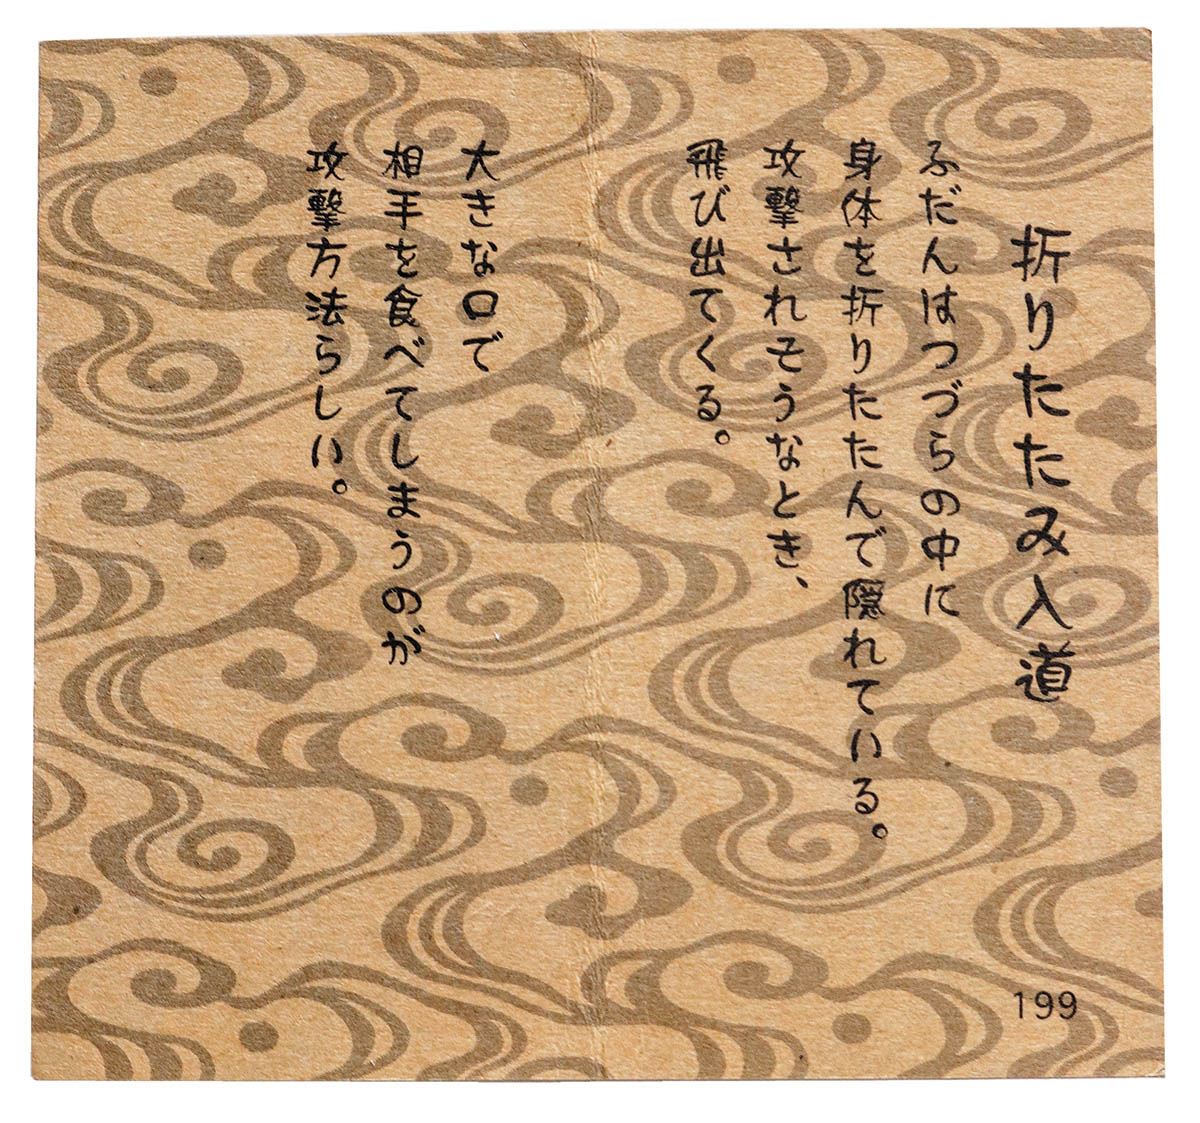 折りたたみ入道
ふだんはつづらの中に
身体を折りたたんで隠れている。
攻撃されそうなとき、
飛び出てくる。
大きな口で
相手を食べてしまうのが
攻撃方法らしい。
199